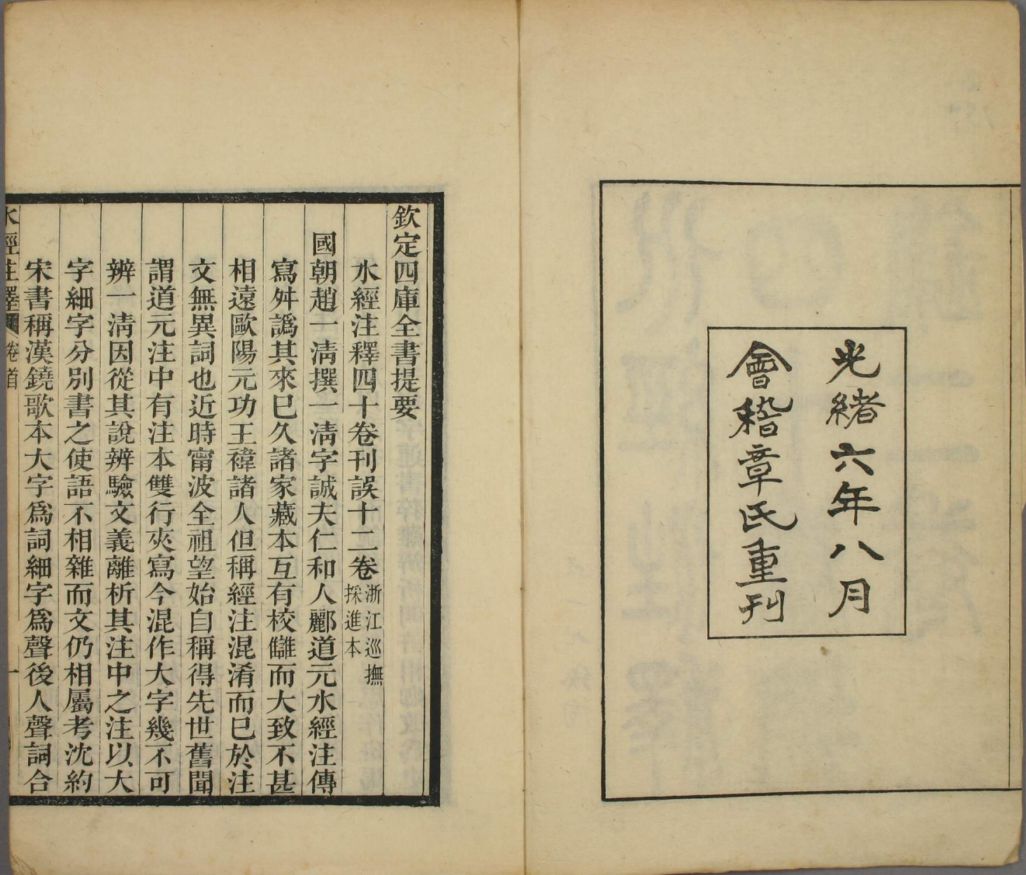 光緒六年八月
會稽章氏重刊
欽定四庫全書提要
水經注釋四十卷刊誤十二卷浙江巡撫
採進本
國朝趙一淸撰一淸字誠夫仁和人酈道元水經注傳
寫舛譌其來已久諸家藏本互有校讎而大致不甚
相遠歐陽元功王禕諸人但稱經注混淆而已於注
文無異詞也近時甯波全祖望始自稱得先世舊聞
謂道元注中有注本雙行夾寫今混作大字幾不可
辨一淸因從其說辨驗文義離析其注中之注以大
字細字分別書之使語不相雜而文仍相屬考沈約
宋書稱漢鐃歌本大字爲詞細字爲聲後人聲詞合
水經注釋 卷首 一